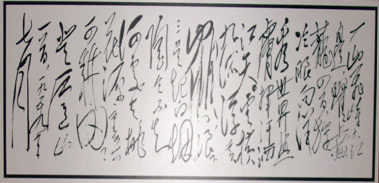 一山飛峙大江
邊躍上葱
蘢四百旋
冷眼向洋
看世界熱
風吹雨洒
江天雲横
九派浮黄
鶴浪下
三吴起白烟
陶令不知
何處去桃
花源里
可耕田
登廬山
一九五九年
七月